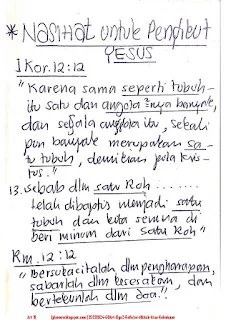 * Nasihat untuk Pengikut
YESUS
I Kor. 12:12
"Karena sama seperti tubuh
itu satu dan anggota²nya banyak,
dan segala anggota itu, sekali
pun banyak merupakan sa-
tu tubuh, demikian pula Kris
tus."
13. Sebab dlm satu Roh .......
telah dibaptis menjadi satu
tubuh dan kita semua di
beri minum dari satu Roh?
Rm. 12:12
"Bersukacitalah dlm pengharapan,
sabarlah dlm kesesakan, dan
bertekunlah dlm doa!!